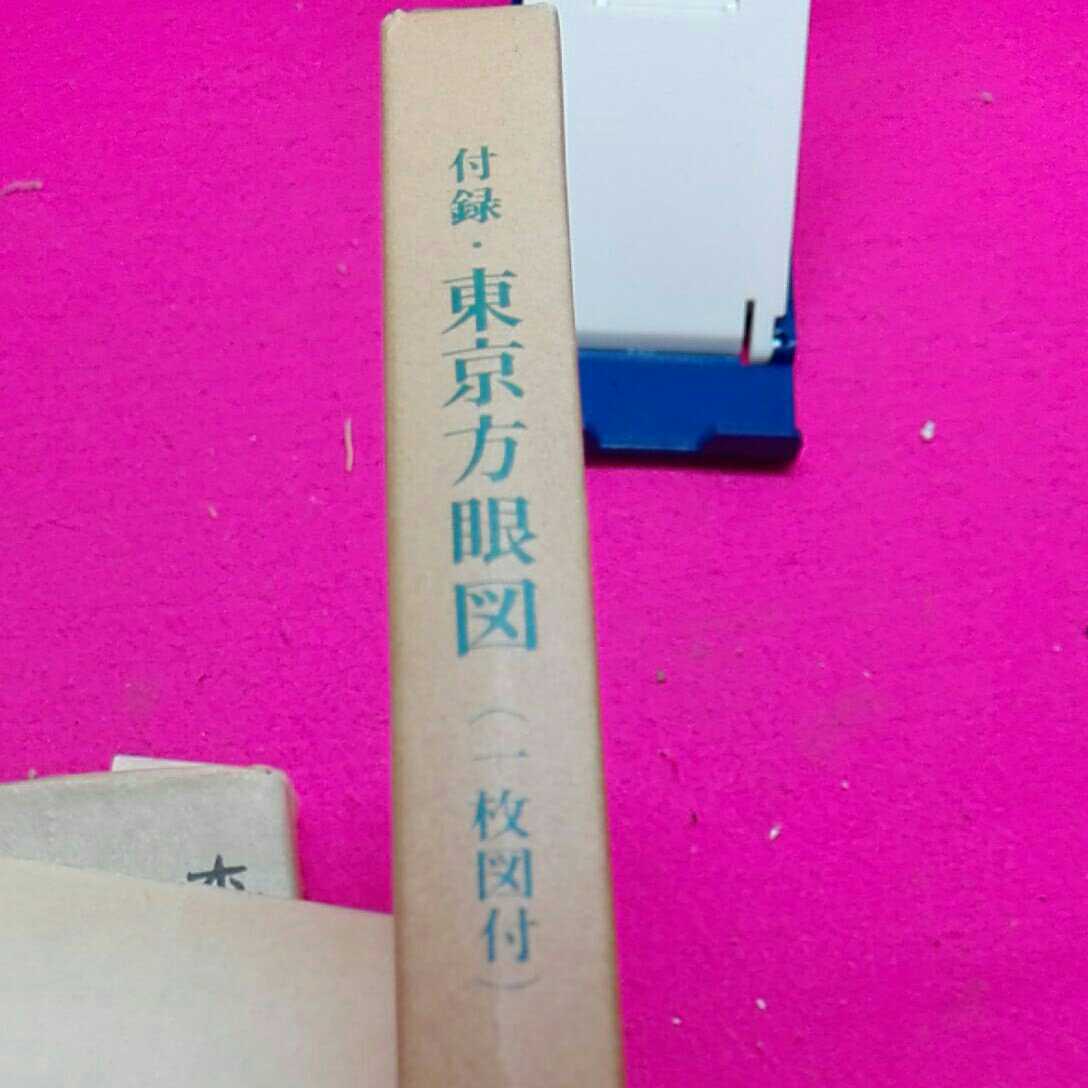 付録・東京方眼図（一枚図付）